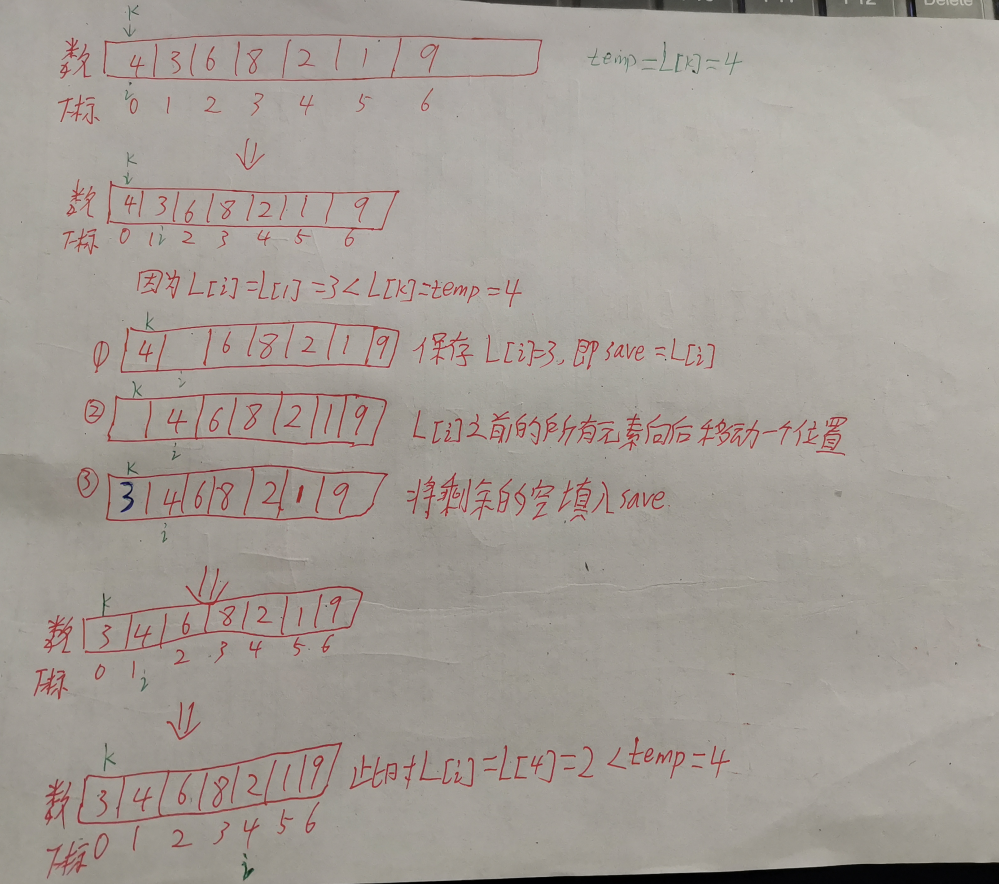 k
数 4 3 6 8 2 1 9 temp=L[k]=4
i
下标 0 1 2 3 4 5 6
k
数 4 3 6 8 2 1 9
下标 0 1 i 2 3 4 5 6
因为L[i]=L[1]=3<L[k]=temp=4
k
① 4 6 8 2 1 9 保存L[i]=3,即save=L[i]
i
k
② 4 6 8 2 1 9 L[i]之前的所有元素向后移动一个位置
i
k
③ 3 4 6 8 2 1 9 将剩余的空填入save
i
k
数 3 4 6 8 2 1 9
下标 0 1 2 3 4 5 6
i
k
数 3 4 6 8 2 1 9 此时L[i]=L[4]=2<temp=4
下标 0 1 2 3 4 5 6
i